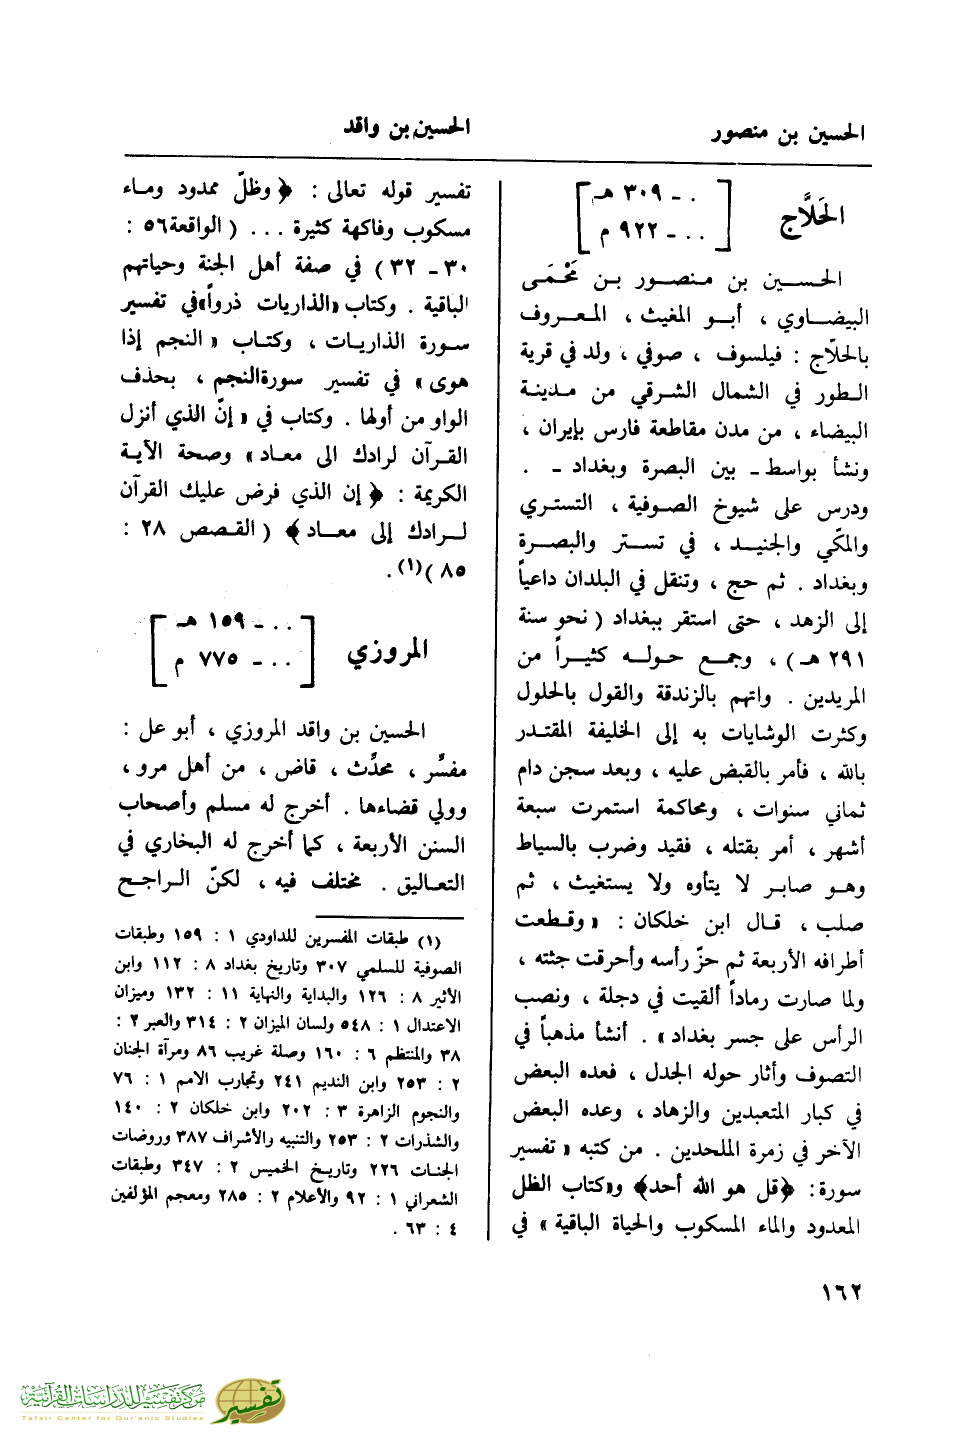 الحسين بن منصور
الحسين بن واقد
الحَلَّاج
. . ـ ٣٠٩ هـ
. . ـ ٩٢٢ م
الحسـين بن منصـور بـن مَحْمَى
البيضـاوي ، أبـو المغيث ، المعـروف
بالحلّاج : فيلسوف ، صوفي ، ولد في قرية
الطور في الشمال الشرقي من مدينة
البيضاء ، من مدن مقاطعة فارس بإيران ،
ونشأ بواسط ـ بين البصرة وبغداد ـ .
ودرس على شيوخ الصوفية ، التستري
والمكّي والجنيد ، في تستر والبصرة
وبغداد . ثم حج ، وتنقل في البلدان داعياً
إلى الزهد ، حتى استقر ببغداد ( نحو سنة
٢٩١ هـ ) ، وجمع حوله كثيراً من
المريدين . واتهم بالزندقة والقول بالحلول
وكثرت الوشايات به إلى الخليفة المقتدر
بالله ، فأمر بالقبض عليه ، وبعد سجن دام
ثماني سنوات ، ومحاكمة استمرت سبعة
أشهر ، أمر بقتله ، فقيد وضرب بالسياط
وهـو صابـر لا يتأوه ولا يستغيث ، ثم
صلب ، قـال ابن خلكان : « وقطعت
أطرافه الأربعة ثم حزّ رأسه وأحرقت جثته ،
ولما صارت رماداً ألقيت في دجلة ، ونصب
الرأس على جسر بغداد » . أنشأ مذهباً في
التصوف وأثار حوله الجدل ، فعده البعض
في كبار المتعبدين والزهاد ، وعده البعض
الآخر في زمرة الملحدين . من كتبه « تفسير
سورة : ﴿قل هو الله أحد﴾ و«كتاب الظل
المعدود والماء المسكوب والحياة الباقية » في
تفسير قوله تعالى : ﴿ وظلّ ممدود وماء
مسكوب وفاكهة كثيرة . . . ( الواقعة ٥٦ :
٣٠ ـ ٣٢ ) في صفة أهل الجنة وحياتهم
الباقية . وكتاب «الذاريات ذرواً» في تفسير
سورة الذاريات ، وكتاب « النجم إذا
هوى » في تفسير سورة النجم ، بحذف
الواو من أولها . وكتاب في « إنّ الذي أنزل
القرآن لرادك الى معاد » وصحة الآية
الكريمة : ﴿ إن الذي فرض عليك القرآن
لـرادك إلى معـاد ﴾ ( القصص ٢٨ :
٨٥ )(١) .
المروزي
. . ـ ١٥٩ هـ
. . ـ ٧٧٥ م
الحسين بن واقد المروزي ، أبو عل :
مفسِّر ، محدِّث ، قاض ، من أهل مرو ،
وولي قضاءها . أخرج له مسلم وأصحاب
السنن الأربعة ، كما أخرج له البخاري في
التعاليق . مختلف فيه ، لكنّ الراجح
(١) طبقات المفسرين للداودي ١ : ١٥٩ وطبقات
الصوفية للسلمي ٣٠٧ وتاريخ بغداد ٨ : ١١٢ وابن
الأثير ٨ : ١٢٦ والبداية والنهاية ١١ : ١٣٢ وميزان
الاعتدال ١ : ٥٤٨ ولسان الميزان ٢ : ٣١٤ والعبر ٢ :
٣٨ والمنتظم ٦ : ١٦٠ وصلة غريب ٨٦ ومرآة الجنان
٢ : ٢٥٣ وابن النديم ٢٤١ وتجارب الامم ١ : ٧٦
والنجوم الزاهرة ٣ : ٢٠٢ وابن خلكان ٢ : ١٤٠
والشذرات ٢ : ٢٥٣ والتنبيه والأشراف ٣٨٧ وروضات
الجنات ٢٢٦ وتاريخ الخميس ٢ : ٣٤٧ وطبقات
الشعراني ١ : ٩٢ والأعلام ٢ : ٢٨٥ ومعجم المؤلفين
٤ : ٦٣ .
١٦٢
مركز تفسير للدراسات القرآنية
Tafsir Center for Qur'anic Studies
تفسير